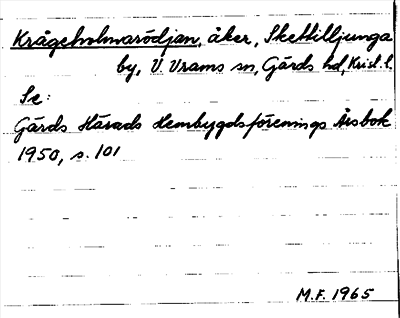 Krågeholmarödjan, åker, Skettilljunga
by, V. Vrams sn, Gärds hd, Krist. l.
Se:
Gärds Härads Hembygdsförenings Årsbok
1950, s. 101
M.F. 1965